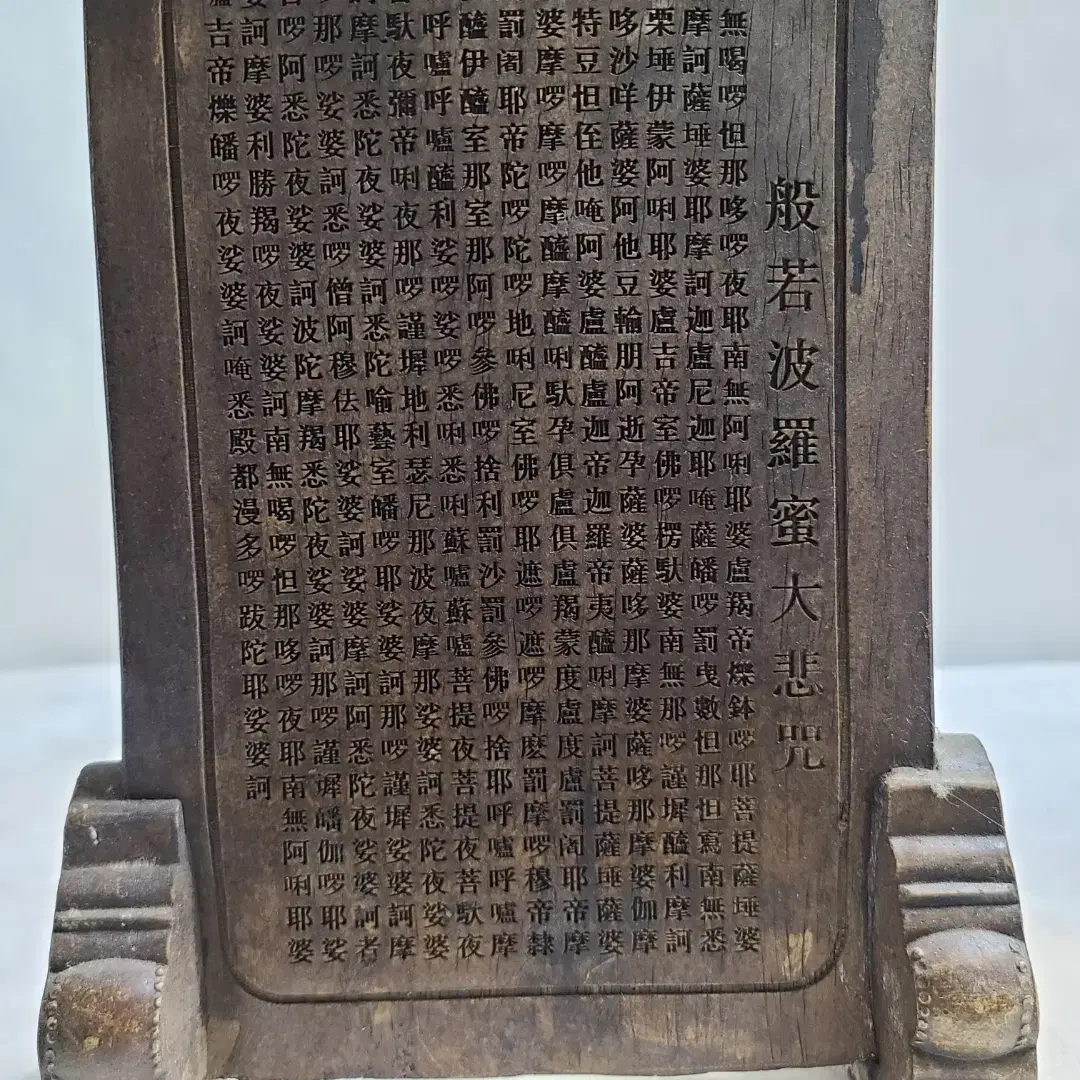 般若波羅蜜大悲咒
無喝啰怛那哆啰夜耶南無阿唎耶婆盧羯帝爍鉢啰耶菩提薩埵婆
摩訶薩埵婆耶摩訶迦盧尼迦耶唵薩皤啰罰曳數怛那怛寫南無悉
栗埵伊蒙阿唎耶婆盧吉帝室佛啰楞馱婆南無那啰謹墀醯利摩訶
哆沙咩薩婆阿他豆輸朋阿逝孕薩婆薩哆那摩婆薩哆那摩婆伽摩
特豆怛侄他唵阿婆盧醯盧迦帝迦羅帝夷醯唎摩訶菩提薩埵薩婆
婆摩啰摩啰摩醯摩醯唎馱孕俱盧俱盧羯蒙度盧度盧罰阇耶帝摩
罰阇耶帝陀啰陀啰地唎尼室佛啰耶遮啰遮啰摩麼罰摩啰穆帝隸
醯伊醯室那室那阿啰參佛啰捨利罰沙罰參佛啰捨耶呼嚧呼嚧摩
呼嚧呼嚧醯利娑啰娑啰悉唎悉唎蘇嚧蘇嚧菩提夜菩提夜菩馱夜
馱夜彌帝唎夜那啰謹墀地利瑟尼那波夜摩那娑婆訶悉陀夜娑婆
摩訶悉陀夜娑婆訶悉陀喻藝室皤啰耶娑婆訶那啰謹墀娑婆訶摩
那啰娑婆訶悉啰僧阿穆佉耶娑婆訶娑婆摩訶阿悉陀夜娑婆訶者
啰阿悉陀夜娑婆訶波陀摩羯悉陀夜娑婆訶那啰謹墀皤伽啰耶娑
訶摩婆利勝羯啰夜娑婆訶南無喝啰怛那哆啰夜耶南無阿唎耶婆
吉帝爍皤啰夜娑婆訶唵悉殿都漫多啰跋陀耶娑婆訶